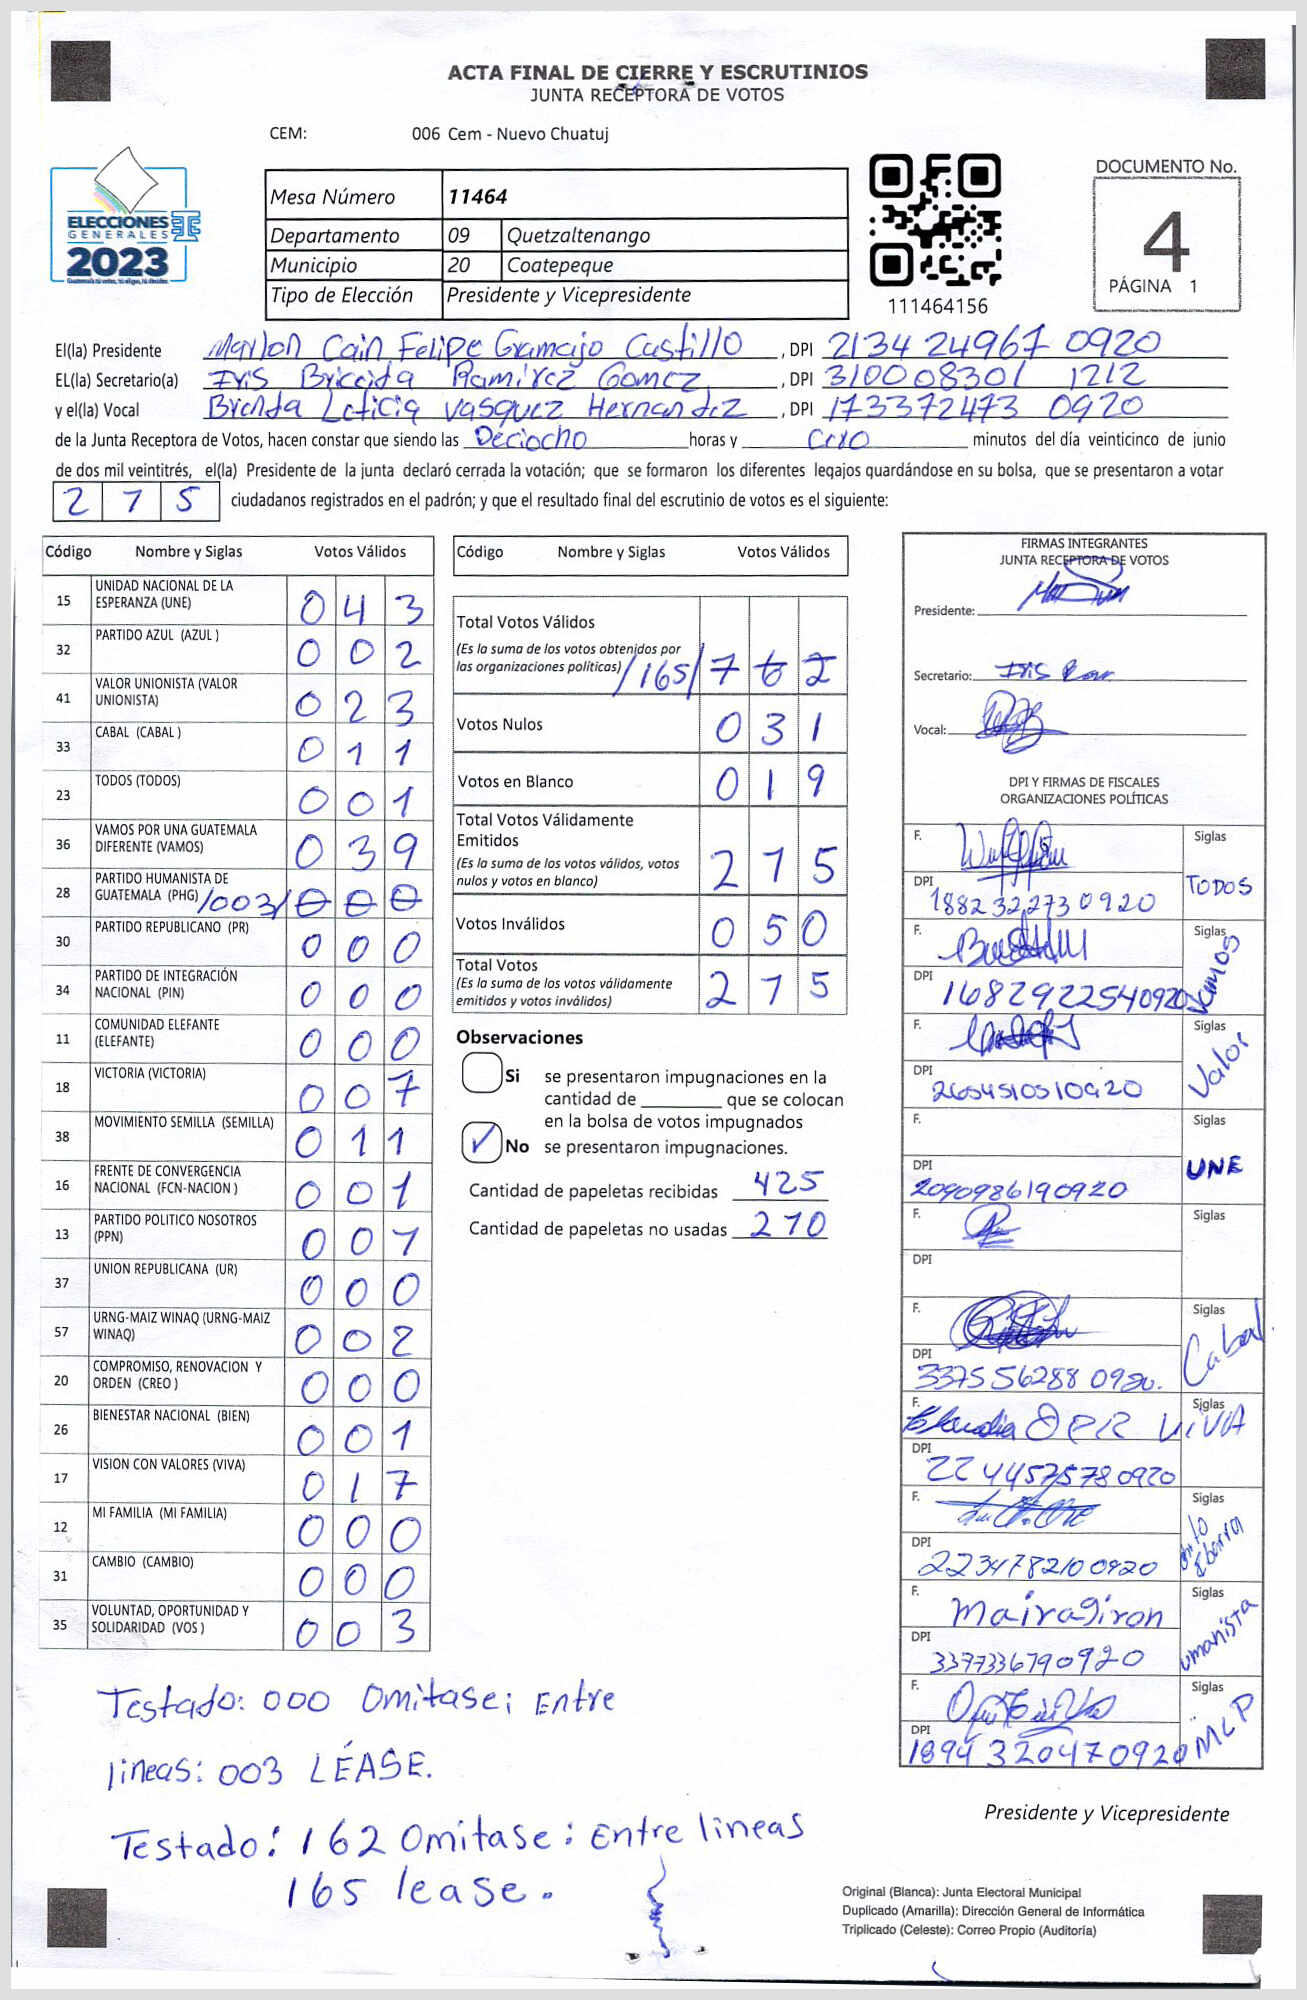 ACTA FINAL DE CIERRE Y ESCRUTINIOS
JUNTA RECEPTORA DE VOTOS
CEM: 006 Cem - Nuevo Chuatuj
ELECCIONES
GENERALES
2023
Mesa Número 11464
Departamento 09 Quetzaltenango
Municipio 20 Coatepeque
Tipo de Elección Presidente y Vicepresidente
111464156
DOCUMENTO No.
4
PÁGINA 1
El(la) Presidente Marlon Cain Felipe Gramajo Castillo , DPI 2134 24967 0920
EL(la) Secretario(a) Iris Bricida Ramírez Gomez , DPI 310008301 1212
y el(la) Vocal Brenda Leticia Vasquez Hernandez , DPI 173372473 0920
de la Junta Receptora de Votos, hacen constar que siendo las Deciocho horas y Cero minutos del día veinticinco de junio
de dos mil veintitrés, el(la) Presidente de la junta declaró cerrada la votación; que se formaron los diferentes legajos quardándose en su bolsa, que se presentaron a votar
2 7 5 ciudadanos registrados en el padrón; y que el resultado final del escrutinio de votos es el siguiente:
Código Nombre y Siglas Votos Válidos
15 UNIDAD NACIONAL DE LA ESPERANZA (UNE) 0 4 3
32 PARTIDO AZUL (AZUL ) 0 0 2
41 VALOR UNIONISTA (VALOR UNIONISTA) 0 2 3
33 CABAL (CABAL ) 0 1 1
23 TODOS (TODOS) 0 0 1
36 VAMOS POR UNA GUATEMALA DIFERENTE (VAMOS) 0 3 9
28 PARTIDO HUMANISTA DE GUATEMALA (PHG) /003/ 0 0 0
30 PARTIDO REPUBLICANO (PR) 0 0 0
34 PARTIDO DE INTEGRACIÓN NACIONAL (PIN) 0 0 0
11 COMUNIDAD ELEFANTE (ELEFANTE) 0 0 0
18 VICTORIA (VICTORIA) 0 0 7
38 MOVIMIENTO SEMILLA (SEMILLA) 0 1 1
16 FRENTE DE CONVERGENCIA NACIONAL (FCN-NACION ) 0 0 1
13 PARTIDO POLITICO NOSOTROS (PPN) 0 0 1
37 UNION REPUBLICANA (UR) 0 0 0
57 URNG-MAIZ WINAQ (URNG-MAIZ WINAQ) 0 0 2
20 COMPROMISO, RENOVACION Y ORDEN (CREO ) 0 0 0
26 BIENESTAR NACIONAL (BIEN) 0 0 1
17 VISION CON VALORES (VIVA) 0 1 7
12 MI FAMILIA (MI FAMILIA) 0 0 0
31 CAMBIO (CAMBIO) 0 0 0
35 VOLUNTAD, OPORTUNIDAD Y SOLIDARIDAD (VOS ) 0 0 3
Código Nombre y Siglas Votos Válidos
Total Votos Válidos
(Es la suma de los votos obtenidos por
las organizaciones políticas) /165/ 1 6 2
Votos Nulos 0 3 1
Votos en Blanco 0 1 9
Total Votos Válidamente
Emitidos
(Es la suma de los votos válidos, votos
nulos y votos en blanco) 2 1 5
Votos Inválidos 0 5 0
Total Votos
(Es la suma de los votos válidamente
emitidos y votos inválidos) 2 1 5
Observaciones
Si se presentaron impugnaciones en la
cantidad de ________ que se colocan
en la bolsa de votos impugnados
✓ No se presentaron impugnaciones.
Cantidad de papeletas recibidas 425
Cantidad de papeletas no usadas 210
FIRMAS INTEGRANTES
JUNTA RECEPTORA DE VOTOS
Presidente:
Secretario: Iris Ram
Vocal:
DPI Y FIRMAS DE FISCALES
ORGANIZACIONES POLÍTICAS
F. Siglas
DPI 188232273 0920 TODOS
F. Siglas
DPI 1682922540920 Vamos
F. Siglas
DPI 2654510510920 Valor
F. Siglas
DPI 2090986190920 UNE
F. Siglas
DPI
F. Siglas
DPI 337556288 0920. Cabal
F. Claudia Siglas VIVA
DPI 2244575780920
F. Siglas
DPI 2234782100920
F. Maira Giron Siglas
DPI 3377336790920 umanista
F. Siglas
DPI 1894320470920 MLP
Testado: 000 Omitase; Entre
lineas: 003 LÉASE.
Testado: 162 Omitase: Entre lineas
165 lease.
Presidente y Vicepresidente
Original (Blanca): Junta Electoral Municipal
Duplicado (Amarilla): Dirección General de Informática
Triplicado (Celeste): Correo Propio (Auditoría)